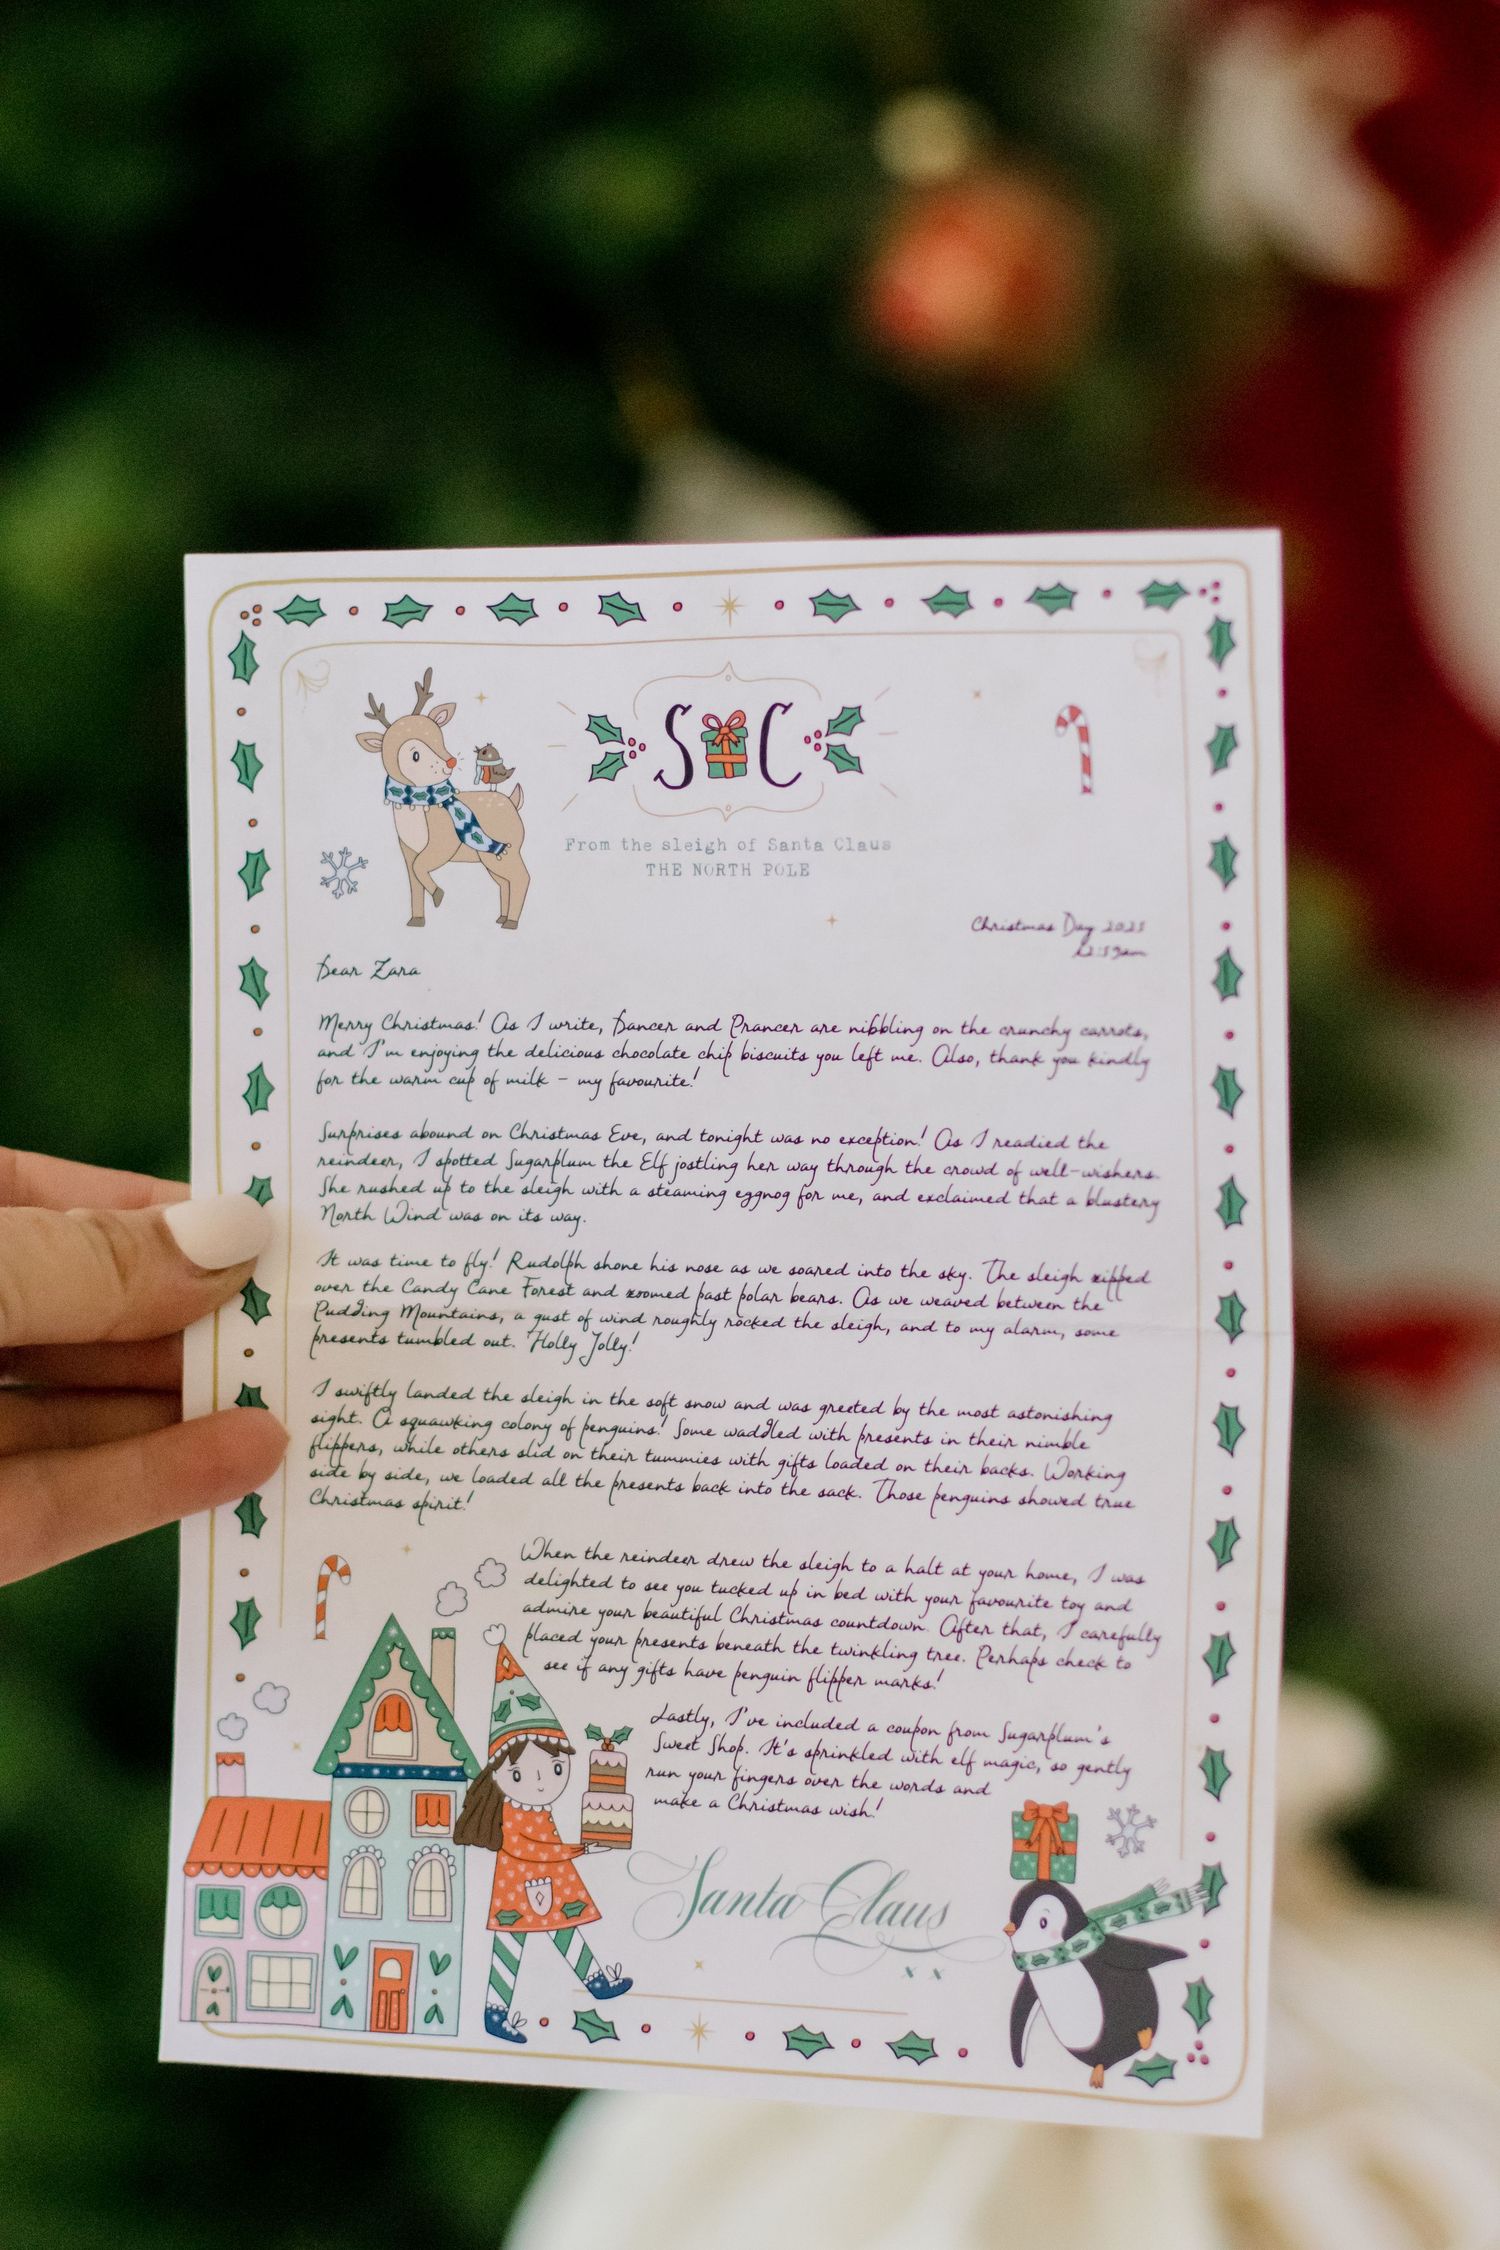 S C
From the sleigh of Santa Claus
THE NORTH POLE
Christmas Day 2023
12:59am
Dear Zara
Merry Christmas! As I write, Dancer and Prancer are nibbling on the crunchy carrots,
and I'm enjoying the delicious chocolate chip biscuits you left me. Also, thank you kindly
for the warm cup of milk – my favourite!
Surprises abound on Christmas Eve, and tonight was no exception! As I readied the
reindeer, I spotted Sugarplum the Elf jostling her way through the crowd of well-wishers.
She rushed up to the sleigh with a steaming eggnog for me, and exclaimed that a blustery
North Wind was on its way.
It was time to fly! Rudolph shone his nose as we soared into the sky. The sleigh zipped
over the Candy Cane Forest and zoomed past polar bears. As we weaved between the
Pudding Mountains, a gust of wind roughly rocked the sleigh, and to my alarm, some
presents tumbled out. Holly Jolly!
I swiftly landed the sleigh in the soft snow and was greeted by the most astonishing
sight. A squawking colony of penguins! Some waddled with presents in their nimble
flippers, while others slid on their tummies with gifts loaded on their backs. Working
side by side, we loaded all the presents back into the sack. Those penguins showed true
Christmas spirit!
When the reindeer drew the sleigh to a halt at your home, I was
delighted to see you tucked up in bed with your favourite toy and
admire your beautiful Christmas countdown. After that, I carefully
placed your presents beneath the twinkling tree. Perhaps check to
see if any gifts have penguin flipper marks!
Lastly, I've included a coupon from Sugarplum's
Sweet Shop. It's sprinkled with elf magic, so gently
run your fingers over the words and
make a Christmas wish!
Santa Claus
x x